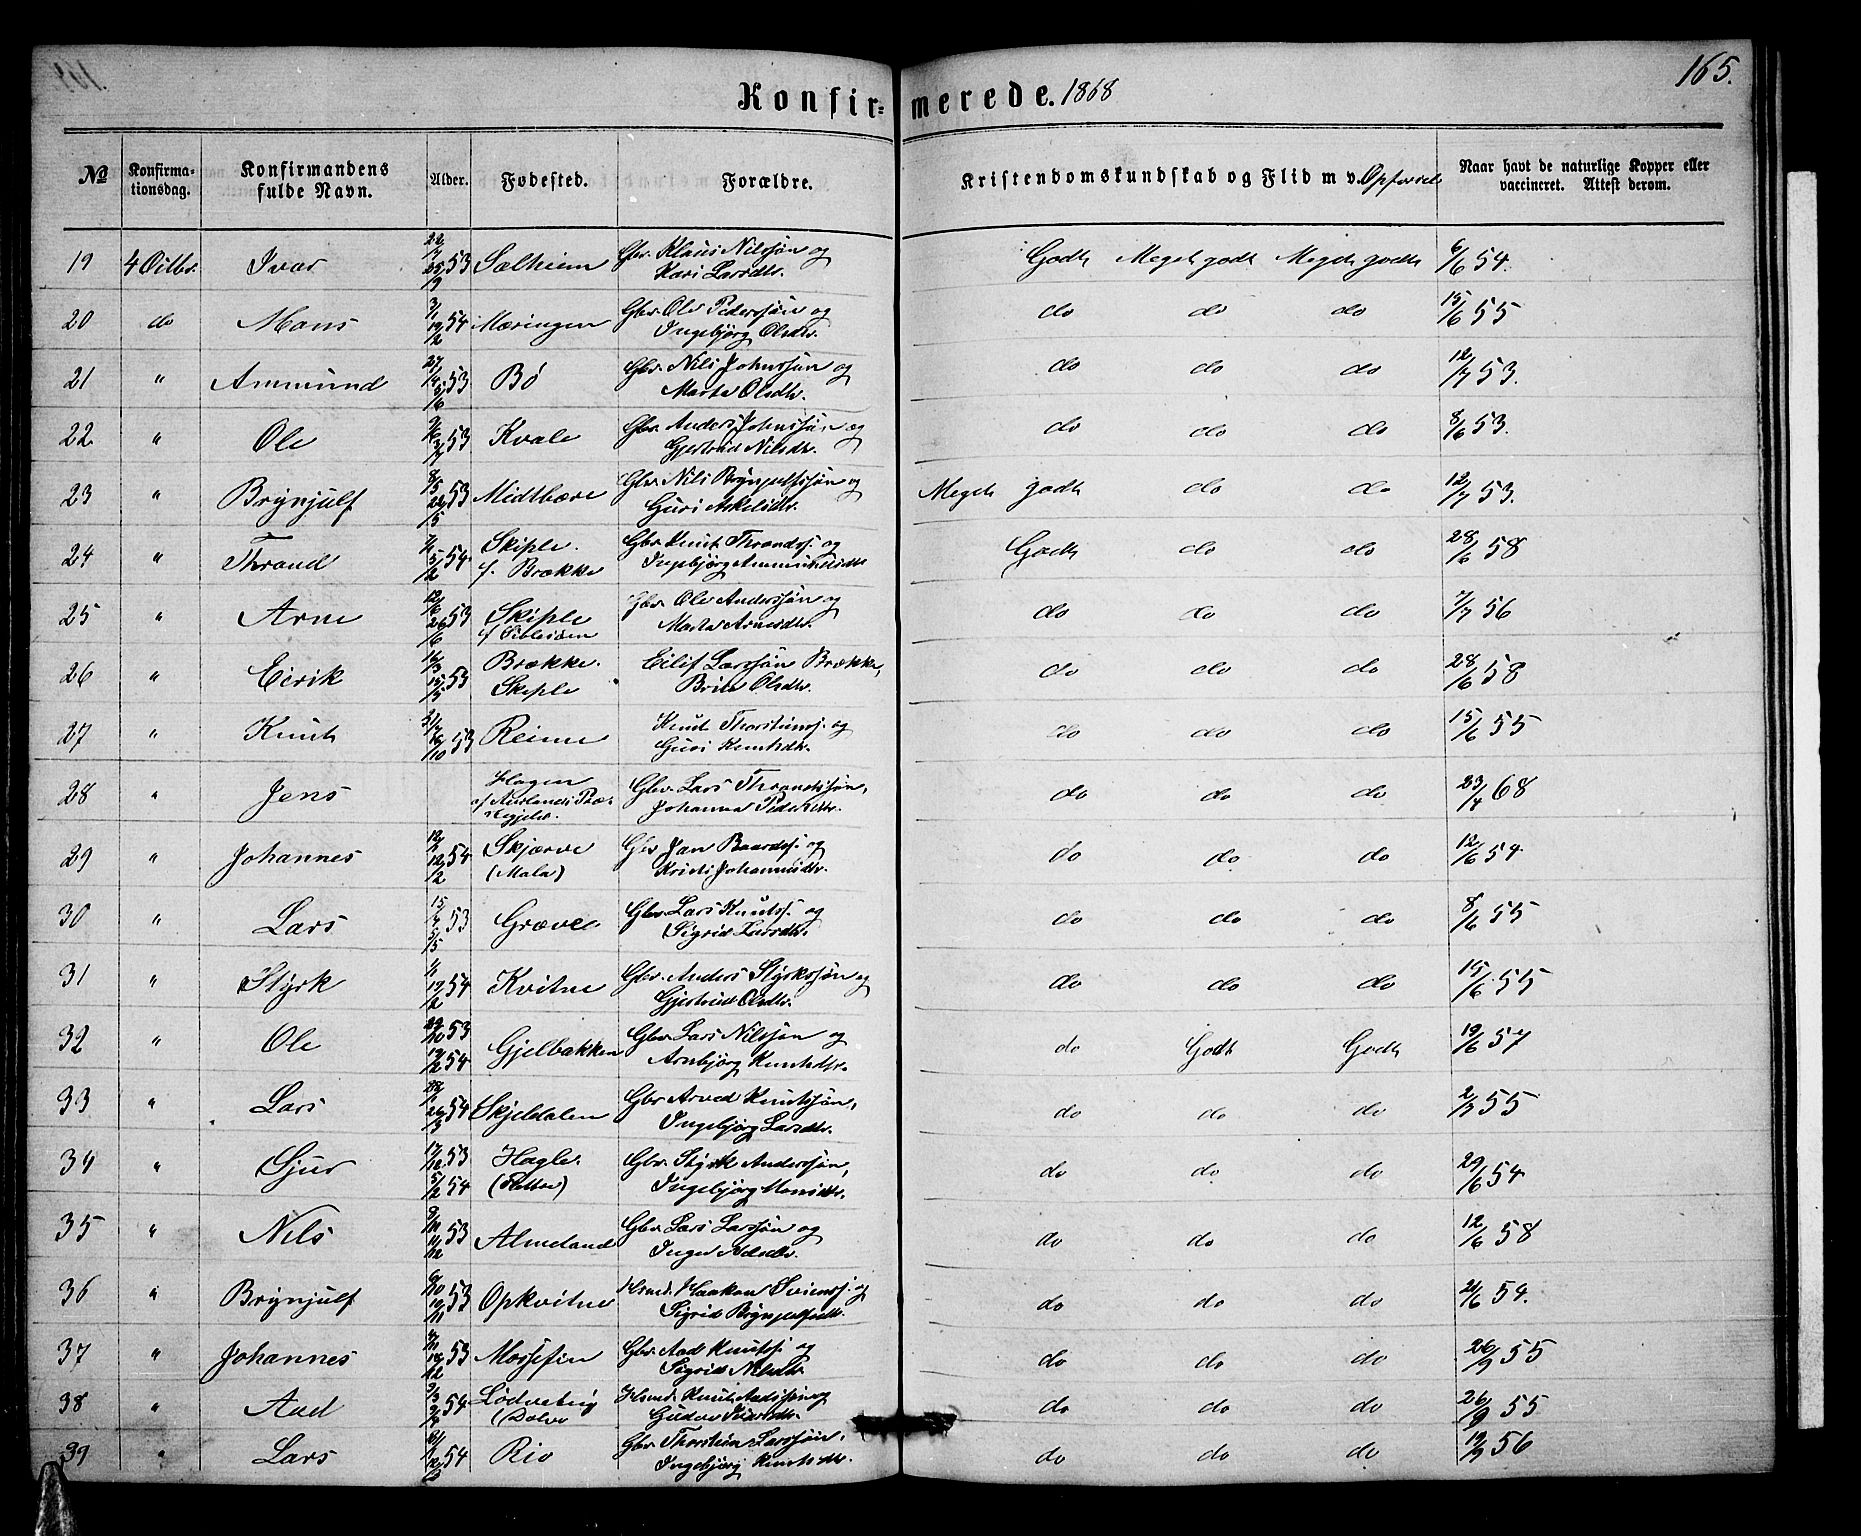 165.
Konfirmerede. 1868
No Konfirmationsdag. Konfirmandens fulde Navn. Alder. Fødested. Forældre. Kristendomskundskab og Flid m v. Opførsel Naar havt de naturlige Kopper eller vaccineret. Attest derom.
19 4 Octbr. Ivar 53 Sælheim Gbr. Klaus Nilssøn og Kari Larsdtr. Godt Meget godt Meget godt 6/6 54.
20 do Mons 3/1 19/2 54 Mæringen Gbr. Ole Pederssøn og Ingebjørg Olsdtr. do do do 15/6 55
21 " Ammund 53 Bø Gbr. Nils Johnssøn og Marta Olsdtr. do do do 12/7 53.
22 " Ole 53 Kvale Gbr. Anders Johnssøn og Gjertrud Nilsdtr. do do do 8/6 53.
23 " Brynjulf 8/5 22/5 53 Midtbære Gbr. Nils Brynjulfssøn og Guri Askelsdtr. Meget godt do do 12/7 53.
24 " Thrond 5/2 54 Skiple. f. Brække Gbr. Knut Throndss. og Ingebjørg Ammundsdtr Godt do do 28/6 58
25 " Arne 12/6 26/6 53 Skiple Gbr. Ole Anderssøn og Marta Arnesdtr. do do do 7/7 56
26 " Eirik 15/5 53 Brække. Skiple Eilif Larssøn Brække, Brita Olsdtr. do do do 28/6 58
27 " Knut 53 Reime Knut Thorsteinss. og Guri Knutsdtr. do do do 15/6 55
28 " Jens Hagen Gbr. Lars Throndssøn, Johanna Pedersdtr. do do do 23/4 68
29 " Johannes 12/2 54 Skjærve (Mala) Gbr Jan Baardss. og Kristi Johannesdtr. do do do 12/6 54.
30 " Lars 53 Græve Gbr. Lars Knutss. og Sigrid Larsdtr. do do do 8/6 55
31 " Styrk 54 Kvitne Gbr. Anders Styrkssøn og Gjertrud Olsdtr. do do do 15/6 55
32 " Ole 29/10 53 19/2 54 Gjelbakken Gbr. Lars Nilssøn og Arnbjørg Knutsdtr. do Godt Godt 19/6 57
33 " Lars 26/3 54 Skjeldalen Gbr Arved Knutssøn, Ingebjørg Larsdtr. do do do 55
34 " Gjur 17/12 53 5/2 54 Hagle. (Flatbø) Gbr. Styrk Anderssøn, Ingebjørg Monsdtr. do do do 29/6 54
35 " Nils 8/11 11/12 53 Almeland Gbr. Lars Larssøn og Inger Nilsdtr. do do do 12/6 58
36 " Brynjulf 19/11 53 Opkvitne Hsmd. Haakon Sveinss. og Sigrid Brynjulfsdtr. do do do 54.
37 " Johannes 53 Mossefin Gbr. Aad Knutss. og Sigrid Nilsdtr. do do do 26/9 55
38 " Aad 54 Lødveteig (Dolve Hsmd. Knut Aadssøn og do do do 26/9 55
39 " Lars 54 Rio Gbr. Thorstein Larssøn, Ingebjørg Knutsdtr. do do do 19/9 56